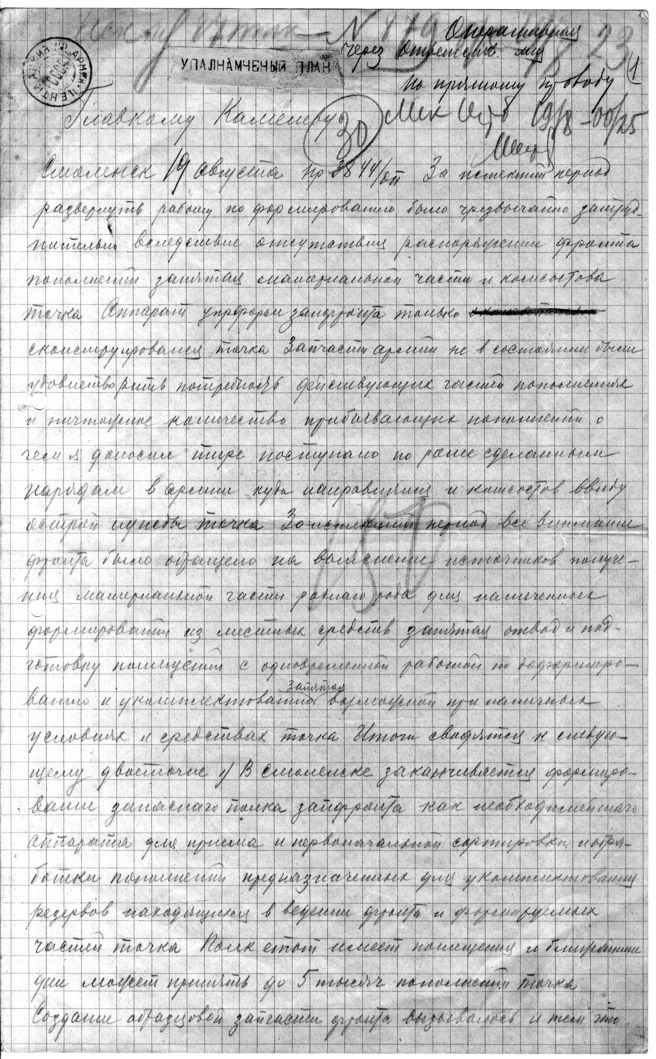 Оперативная
через
УПАЛНАМЧЕБНЫЙ ПЛАН
По прямому проводу
Главкому Каменеву
30
19/8 - 00/25
Смоленск 19 августа нр 3844/оп За истекший период
развернуть работу по формированию было чрезвычайно затруд-
нительно вследствие отсутствия распоряжении фронта
пополнении запятая материальной части и комсостава
точка Аппарат упрформ запфронта только
сконструировался точка Запчасти армии не в состоянии были
удовлетворить потребность действующих частей пополнениях
и ничтожное количество прибывающих пополнении о
чем я доносил тире поступало по ранее сделанным
нарядам в армии куда направлялся и комсостав ввиду
острой нужды точка За истекший период все внимание
фронта было обращено на выяснение источников получе-
ния материальной части разного рода для намеченных
формировании из местных средств запятая отвод и под-
готовку помещении с одновременной работой по доформиро-
ванию и укомплектованию запятая возможной при наличных
условиях и средствах точка Итоги сводятся к следую-
щему двоеточие 1/ В Смоленске заканчивается формиро-
вание запасного полка запфронта как необходимейшего
аппарата для приема и первоначальной сортировки
ботки пополнении предназначенных для укомплектования
резервов находящихся в ведении фронта и формируемых
частей точка Полк етот имеет помещения и ближайшие
дни может принять до 5 тысяч пополнении точка
Создание образцовой запчасти фронта вызывалось и тем что